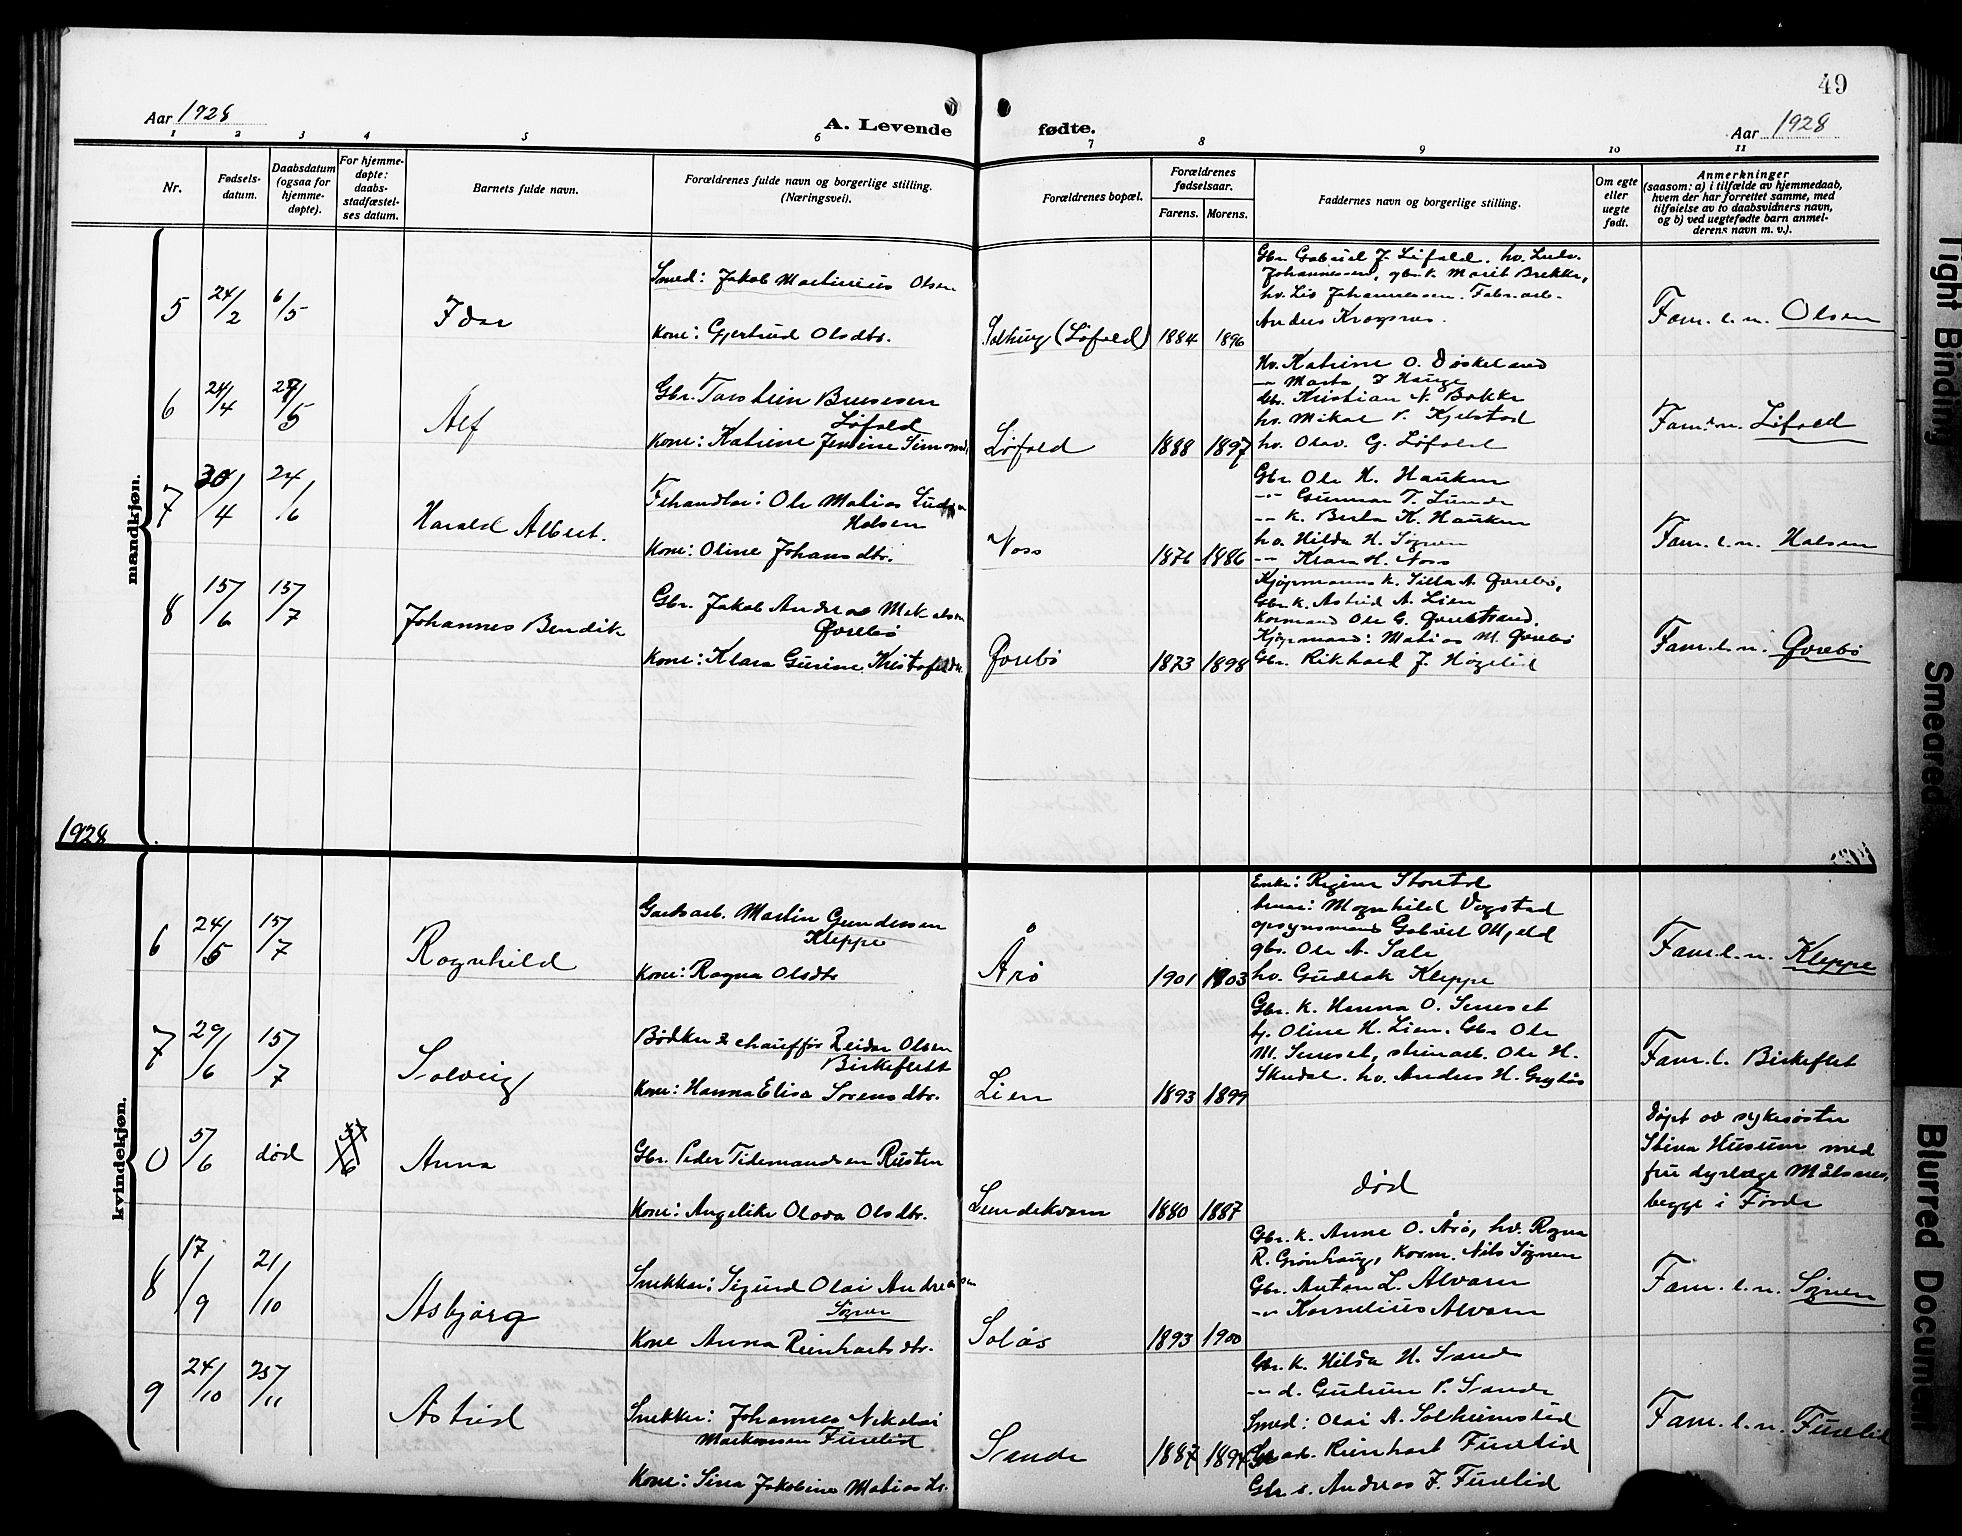 49
Aar 1928
A. Levende fødte.
Aar 1928
1 2 3 4 5 6 7 8 9 10 11
Nr.
Fødsels-
datum.
Daabsdatum
(ogsaa for
hjemme-
døpte).
For hjemme-
døpte:
daabs-
stadfæstel-
ses datum.
Barnets fulde navn.
Forældrenes fulde navn og borgerlige stilling.
(Næringsvei).
Forældrenes bopæl.
Forældrenes
fødselsaar.
Farens. Morens.
Faddernes navn og borgerlige stilling.
Om egte
eller
uegte
født.
Anmerkninger
(saasom: a) i tilfælde av hjemmedaab,
hvem der har forrettet samme, med
tilføielse av to daabsvidners navn,
og b) ved uegtefødte barn anmel-
derens navn m. v.).
mandkjøn.
5 24/2 6/5 Idar
Smed: Jakob Martinius Olsen
Kone: Gjertrud Olsdtr.
Solhaug (Løfald) 1884 1896
Gbr. Gabriel J. Løfald. hv. Ludv.
Johannessen, gbr. k. Marit Brekke,
hv. Liv Johannessen. Fabr.arb.
Anders Kragsnes.
Fam. l. n. Olsen
6 24/4 27/5 Alf
Gbr. Torstein Bruessen
Løfald
Kone: Katrine Jensine Simonsd.
Løfald 1888 1897
Hv. Katrine O. Døskeland
-"- Marta J Hauge
Gbr. Kristian N. Bakke
hv. Mikal P. Kjelstad
hv. Olav. G. Løfald
Fam. n. Løfald
7 30/4 24/6 Harald Albert.
Fehandler: Ole Matias Ludv.
Halsen
Kone: Oline Johansdtr.
Voss 1876 1886
Gbr Ole H. Hauken
-"- Gunnar T. Lunde
-"- k. Berta K. Hauken
hv. Hilda H. Sognen
-"- Klara H. Voss
Fam. l. n. Halsen
8 15/6 15/7 Johannes Bendik
Gbr. Jakob Andreas Mikalsen
Øvrebø
Kone: Klara Gurine Kristofsdtr.
Øvrebø 1873 1898
Kjøpmanns k. Silla A. Øvrebø,
Gbr. k. Astrid A. Lien
Kormand Ole G. Øvrestrand.
Kjøpmand: Matias M. Øvrebø
Gbr. Rikhard J. Høgelid
Fam. l. n. Øvrebø
1928
kvindekjøn.
6 24/5 15/7 Ragnhild
Gardsarb. Martin Gundersen
Kleppe
Kone: Ragna Olsdtr
Årø 1901 1903
Enke: Regine Storstad
Magnhild Vogstad
opsynsmand Gabriel Mjeld
gbr. Ole A. Sale
hv. Gudrak Kleppe
Fam. l. n. Kleppe
7 29/6 15/7 Solveig
Bødker & chauffør Reidar Olsen
Birkeflet
Kone: Hanna Elisa Sørensdtr.
Lien 1893 1899
Gbr. k. Hanna O. Senneset
tj. Oline H. Lien. Gbr Ole
M. Senneset, stenarb. Ole H.
Skudal. hv. Anders H. Grytås
Fam. l. Birkeflet
0 5/6 død Anna
Gbr. Peder Tidemandsen Rusten
Kone: Angelike Olava Olsdtr.
Lundekvam 1880 1887
død
Døpt av sykesøster
Stina Husum med
fru dyrlæge Målsnes,
begge i Førde
8 17/9 21/10 Asbjørg
Snekker: Sigurd Olai Andreassen
Sognen
Kone Anna Reinhartsdtr.
Solås 1893 1900
Gbr. k. Anne O. Årø, hv. Ragna
R. Grønhaug, korm. Nils Sognen
Gbr. Anton L. Alvam
-"- Kornelius Alvam
Fam. l. n. Sognen
9 24/10 25/11 Astrid
Snekker: Johannes Nikolai
Markussen Furelid
Kone: Sina Jakobine Matiasdtr.
Sande 1887 1894
Gbr. k. Hilda H. Sande
-"- d. Gudrun P. Sande
Smed: Olai A. Solheimslid
Reinhart Furelid
Gbr. s. Andreas J. Furelid
Fam. l. n. Furelid
Tight Binding
Smeared
Blurred Document